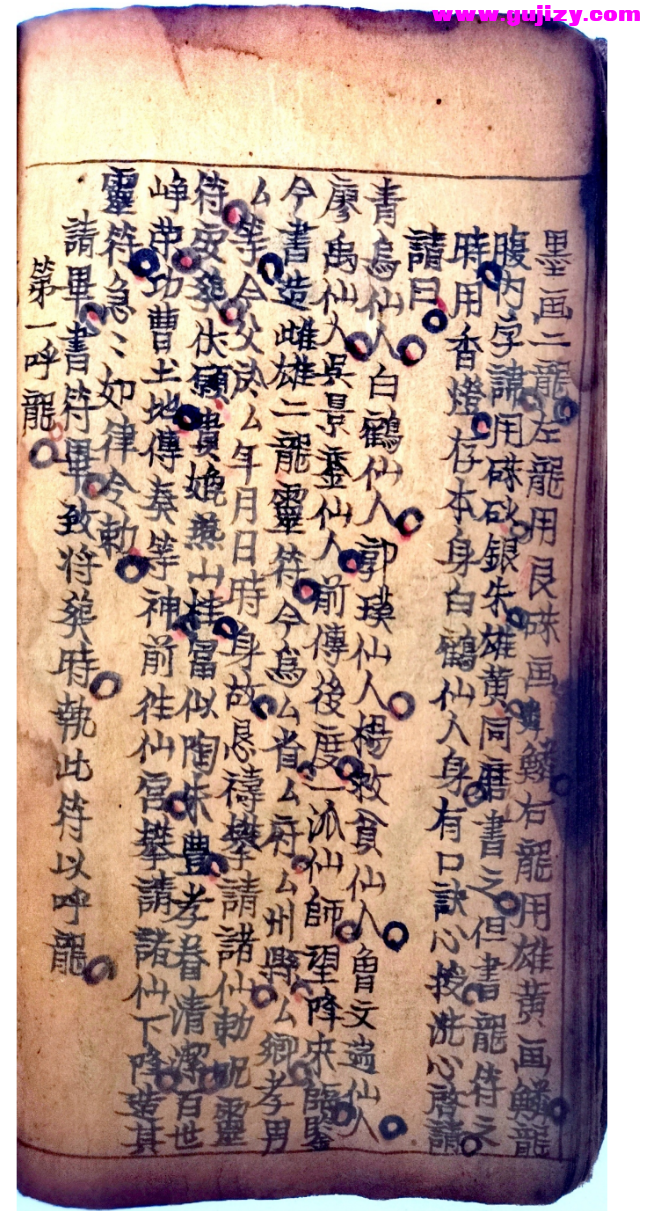 www.gujizy.com
墨画二龍左龍用良硃画鱗右龍用雄黄画鱗龍
腹内字諱用硃砂銀朱雄黄同磨書之但書龍符之
時用香燈存本身白鶴仙人身有口訣心授洗心啓請
請曰
青烏仙人白鶴仙人郭璞仙人楊救貧仙人曾文遄仙人
廖禹仙人吳景鸞仙人前傳後度一派仙師望降來臨鑒
今書造雌雄二龍靈符今為厶省厶府厶州縣厶鄉孝男
厶等今父於厶年月日時身故恳禱攀請諸仙勅呪靈
符安葬伏願貴媲燕山桂富似陶朱豊孝眷清潔百世
峥功曹土地傳奏等神前徃仙宫攀請諸仙下降造其
靈符急〻如律令勅
請畢書符畢致将葬時執此符以呼龍
第一呼龍